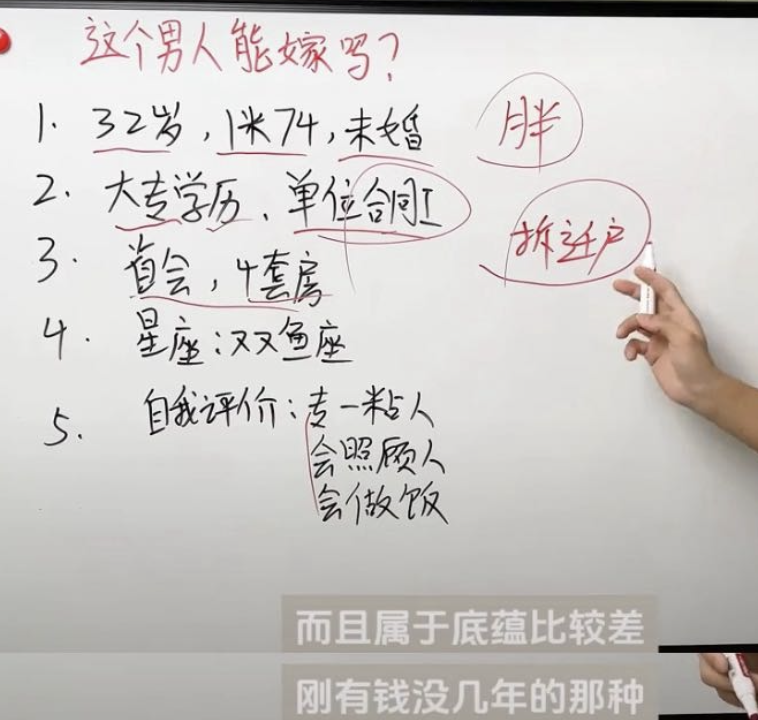 这个男人能嫁吗？
1. 32岁，1米74，未婚
胖
2. 大专学历、单位合同工
拆迁户
3. 首会，4套房
4. 星座：双鱼座
5. 自我评价：专一粘人
会照顾人
会做饭
而且属于底蕴比较差
刚有钱没几年的那种